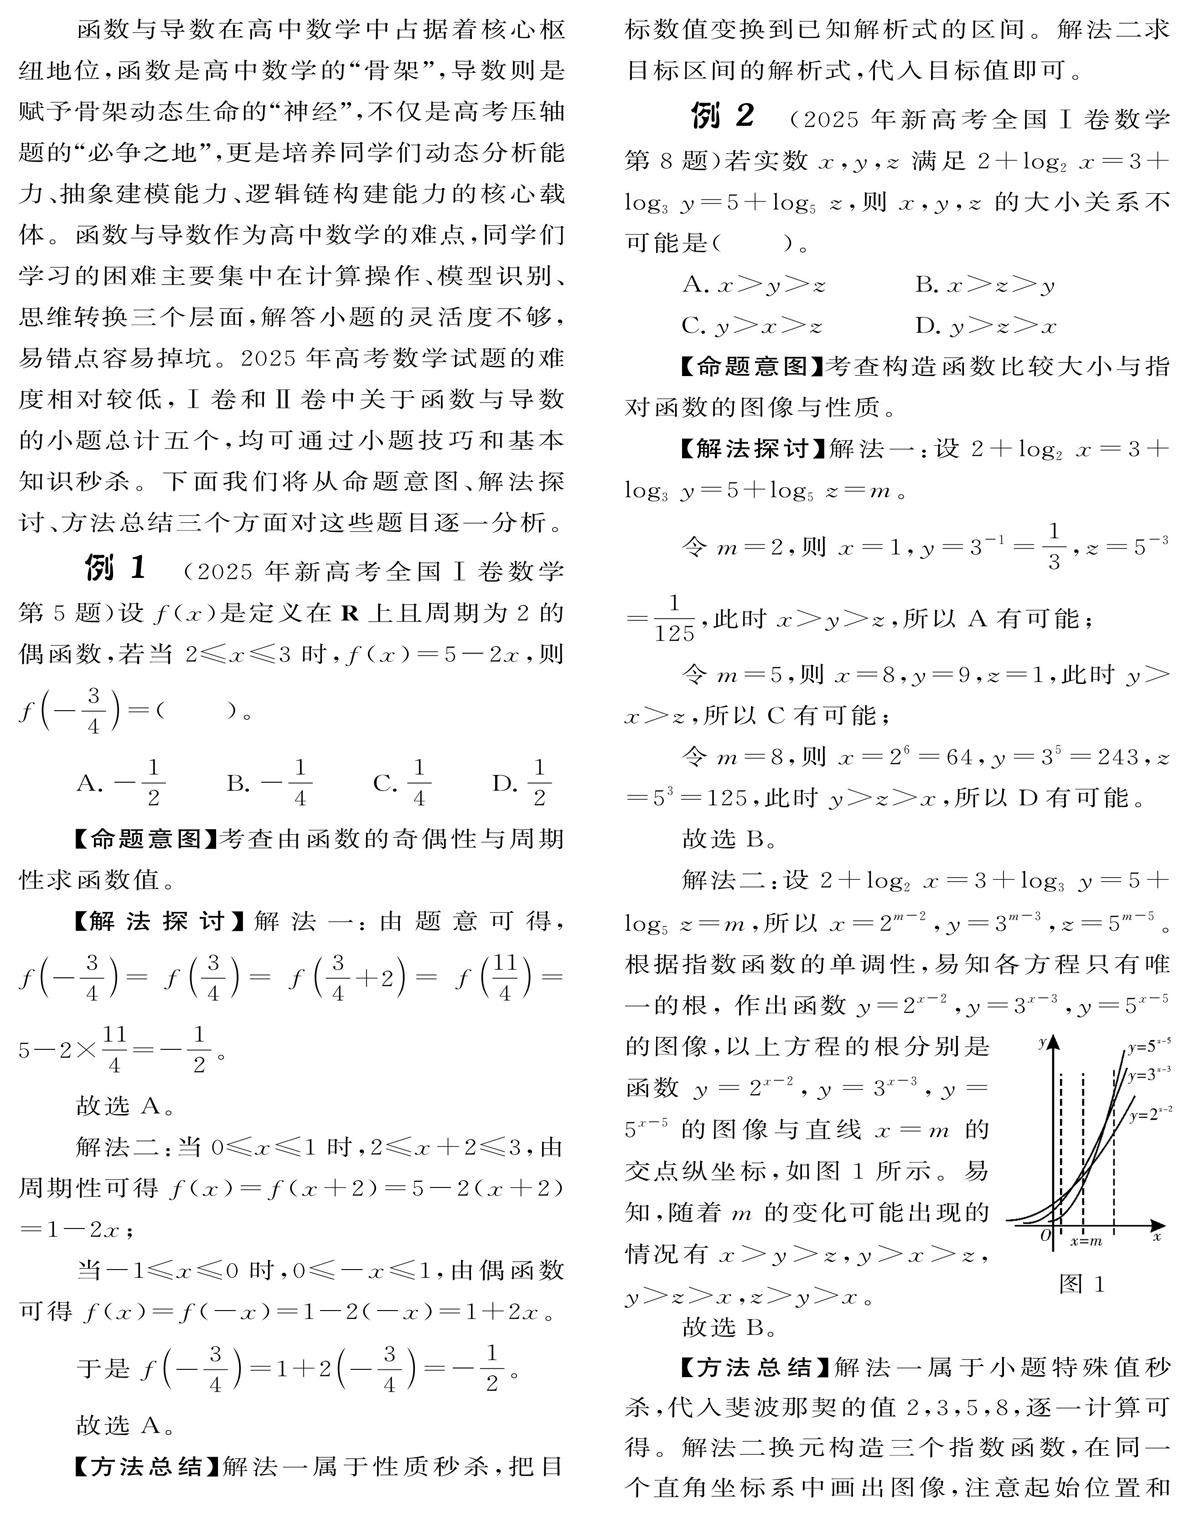 函数与导数在高中数学中占据着核心枢
纽地位,函数是高中数学的“骨架”,导数则是
赋予骨架动态生命的“神经”,不仅是高考压轴
题的“必争之地”,更是培养同学们动态分析能
力、抽象建模能力、逻辑链构建能力的核心载
体。函数与导数作为高中数学的难点,同学们
学习的困难主要集中在计算操作、模型识别、
思维转换三个层面,解答小题的灵活度不够,
易错点容易掉坑。2025 年高考数学试题的难
度相对较低,Ⅰ卷和Ⅱ卷中关于函数与导数
的小题总计五个,均可通过小题技巧和基本
知识秒杀。下面我们将从命题意图、解法探
讨、方法总结三个方面对这些题目逐一分析。
例 1 (2025 年新高考全国Ⅰ卷数学
第 5 题)设 f(x)是定义在 R 上且周期为 2 的
偶函数,若当 2≤x≤3 时,f(x)=5-2x,则
f(-3/4)=(　　)。
A. -1/2 B. -1/4 C. 1/4 D. 1/2
【命题意图】考查由函数的奇偶性与周期
性求函数值。
【解法探讨】解法一:由题意可得,
f(-3/4)= f(3/4)= f(3/4+2)= f(11/4)=
5-2×11/4=-1/2。
故选 A。
解法二:当 0≤x≤1 时,2≤x+2≤3,由
周期性可得 f(x)=f(x+2)=5-2(x+2)
=1-2x;
当-1≤x≤0 时,0≤-x≤1,由偶函数
可得 f(x)=f(-x)=1-2(-x)=1+2x。
于是 f(-3/4)=1+2(-3/4)=-1/2。
故选 A。
【方法总结】解法一属于性质秒杀,把目
标数值变换到已知解析式的区间。解法二求
目标区间的解析式,代入目标值即可。
例 2 (2025 年新高考全国Ⅰ卷数学
第 8 题)若实数 x,y,z 满足 2+log₂ x=3+
log₃ y=5+log₅ z,则 x,y,z 的大小关系不
可能是(　　)。
A. x>y>z B. x>z>y
C. y>x>z D. y>z>x
【命题意图】考查构造函数比较大小与指
对函数的图像与性质。
【解法探讨】解法一:设 2+log₂ x=3+
log₃ y=5+log₅ z=m。
令 m=2,则 x=1,y=3⁻¹=1/3,z=5⁻³
=1/125,此时 x>y>z,所以 A 有可能;
令 m=5,则 x=8,y=9,z=1,此时 y>
x>z,所以 C 有可能;
令 m=8,则 x=2⁶=64,y=3⁵=243,z
=5³=125,此时 y>z>x,所以 D 有可能。
故选 B。
解法二:设 2+log₂ x=3+log₃ y=5+
log₅ z=m,所以 x=2ᵐ⁻²,y=3ᵐ⁻³,z=5ᵐ⁻⁵。
根据指数函数的单调性,易知各方程只有唯
一的根,作出函数 y=2ˣ⁻²,y=3ˣ⁻³,y=5ˣ⁻⁵
的图像,以上方程的根分别是
函数 y=2ˣ⁻²,y=3ˣ⁻³,y=
5ˣ⁻⁵ 的图像与直线 x=m 的
交点纵坐标,如图 1 所示。易
知,随着 m 的变化可能出现的
情况有 x>y>z,y>x>z,
y>z>x,z>y>x。
y
y=5ˣ⁻⁵
y=3ˣ⁻³
y=2ˣ⁻²
O
x=m
x
图 1
故选 B。
【方法总结】解法一属于小题特殊值秒
杀,代入斐波那契的值 2,3,5,8,逐一计算可
得。解法二换元构造三个指数函数,在同一
个直角坐标系中画出图像,注意起始位置和